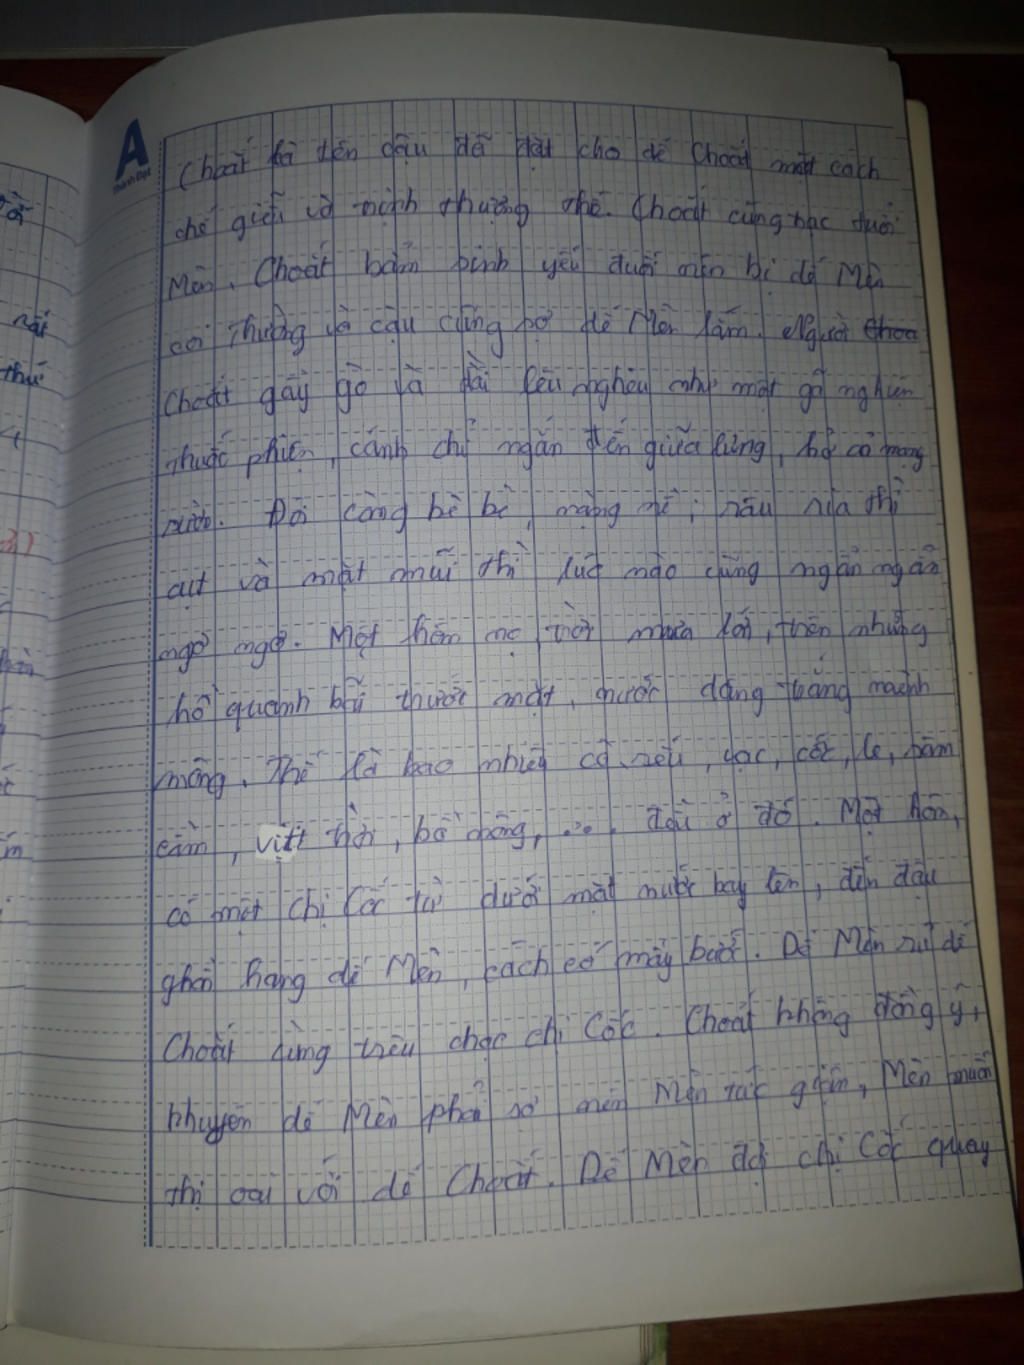 A
Thành Đạt
Choắt là tên cậu đã đặt cho dế Choắt một cách
chế giễu và trịnh thượng thế. Choắt cũng trạc tuổi
Mèn. Choắt bẩm sinh yếu đuối nên bị dế Mèn
coi thường và cậu cũng sợ dế Mèn lắm. Người
Choắt gầy gò và dài lêu nghêu như một gã nghiện
thuốc phiện, cánh chỉ ngắn đến giữa lưng, hở cả mạng
sườn. Đôi càng bè bè, nặng nề, râu ria thì
cụt và mặt mũi thì lúc nào cũng ngẩn ngẩn
ngơ ngơ. Một hôm nọ, trời mưa lớn, trên những
hồ quanh bãi trước mặt, nước dâng trắng mênh
mông. Thế là bao nhiêu cò, sếu, vạc, cốc, le, sâm
cầm, vịt trời, bồ nông, ... đâu ở đó. Một hôm,
có một chị Cốc từ dưới mặt nước bay lên, đến đậu
gần hang dế Mèn, cách có mấy bước. Dế Mèn rủ dế
Choắt cùng trêu chọc chị Cốc. Choắt không đồng ý,
khuyên dế Mèn phải sợ nên Mèn tức giận, Mèn muốn
thị oai với dế Choắt. Dế Mèn đợi chị Cốc quay